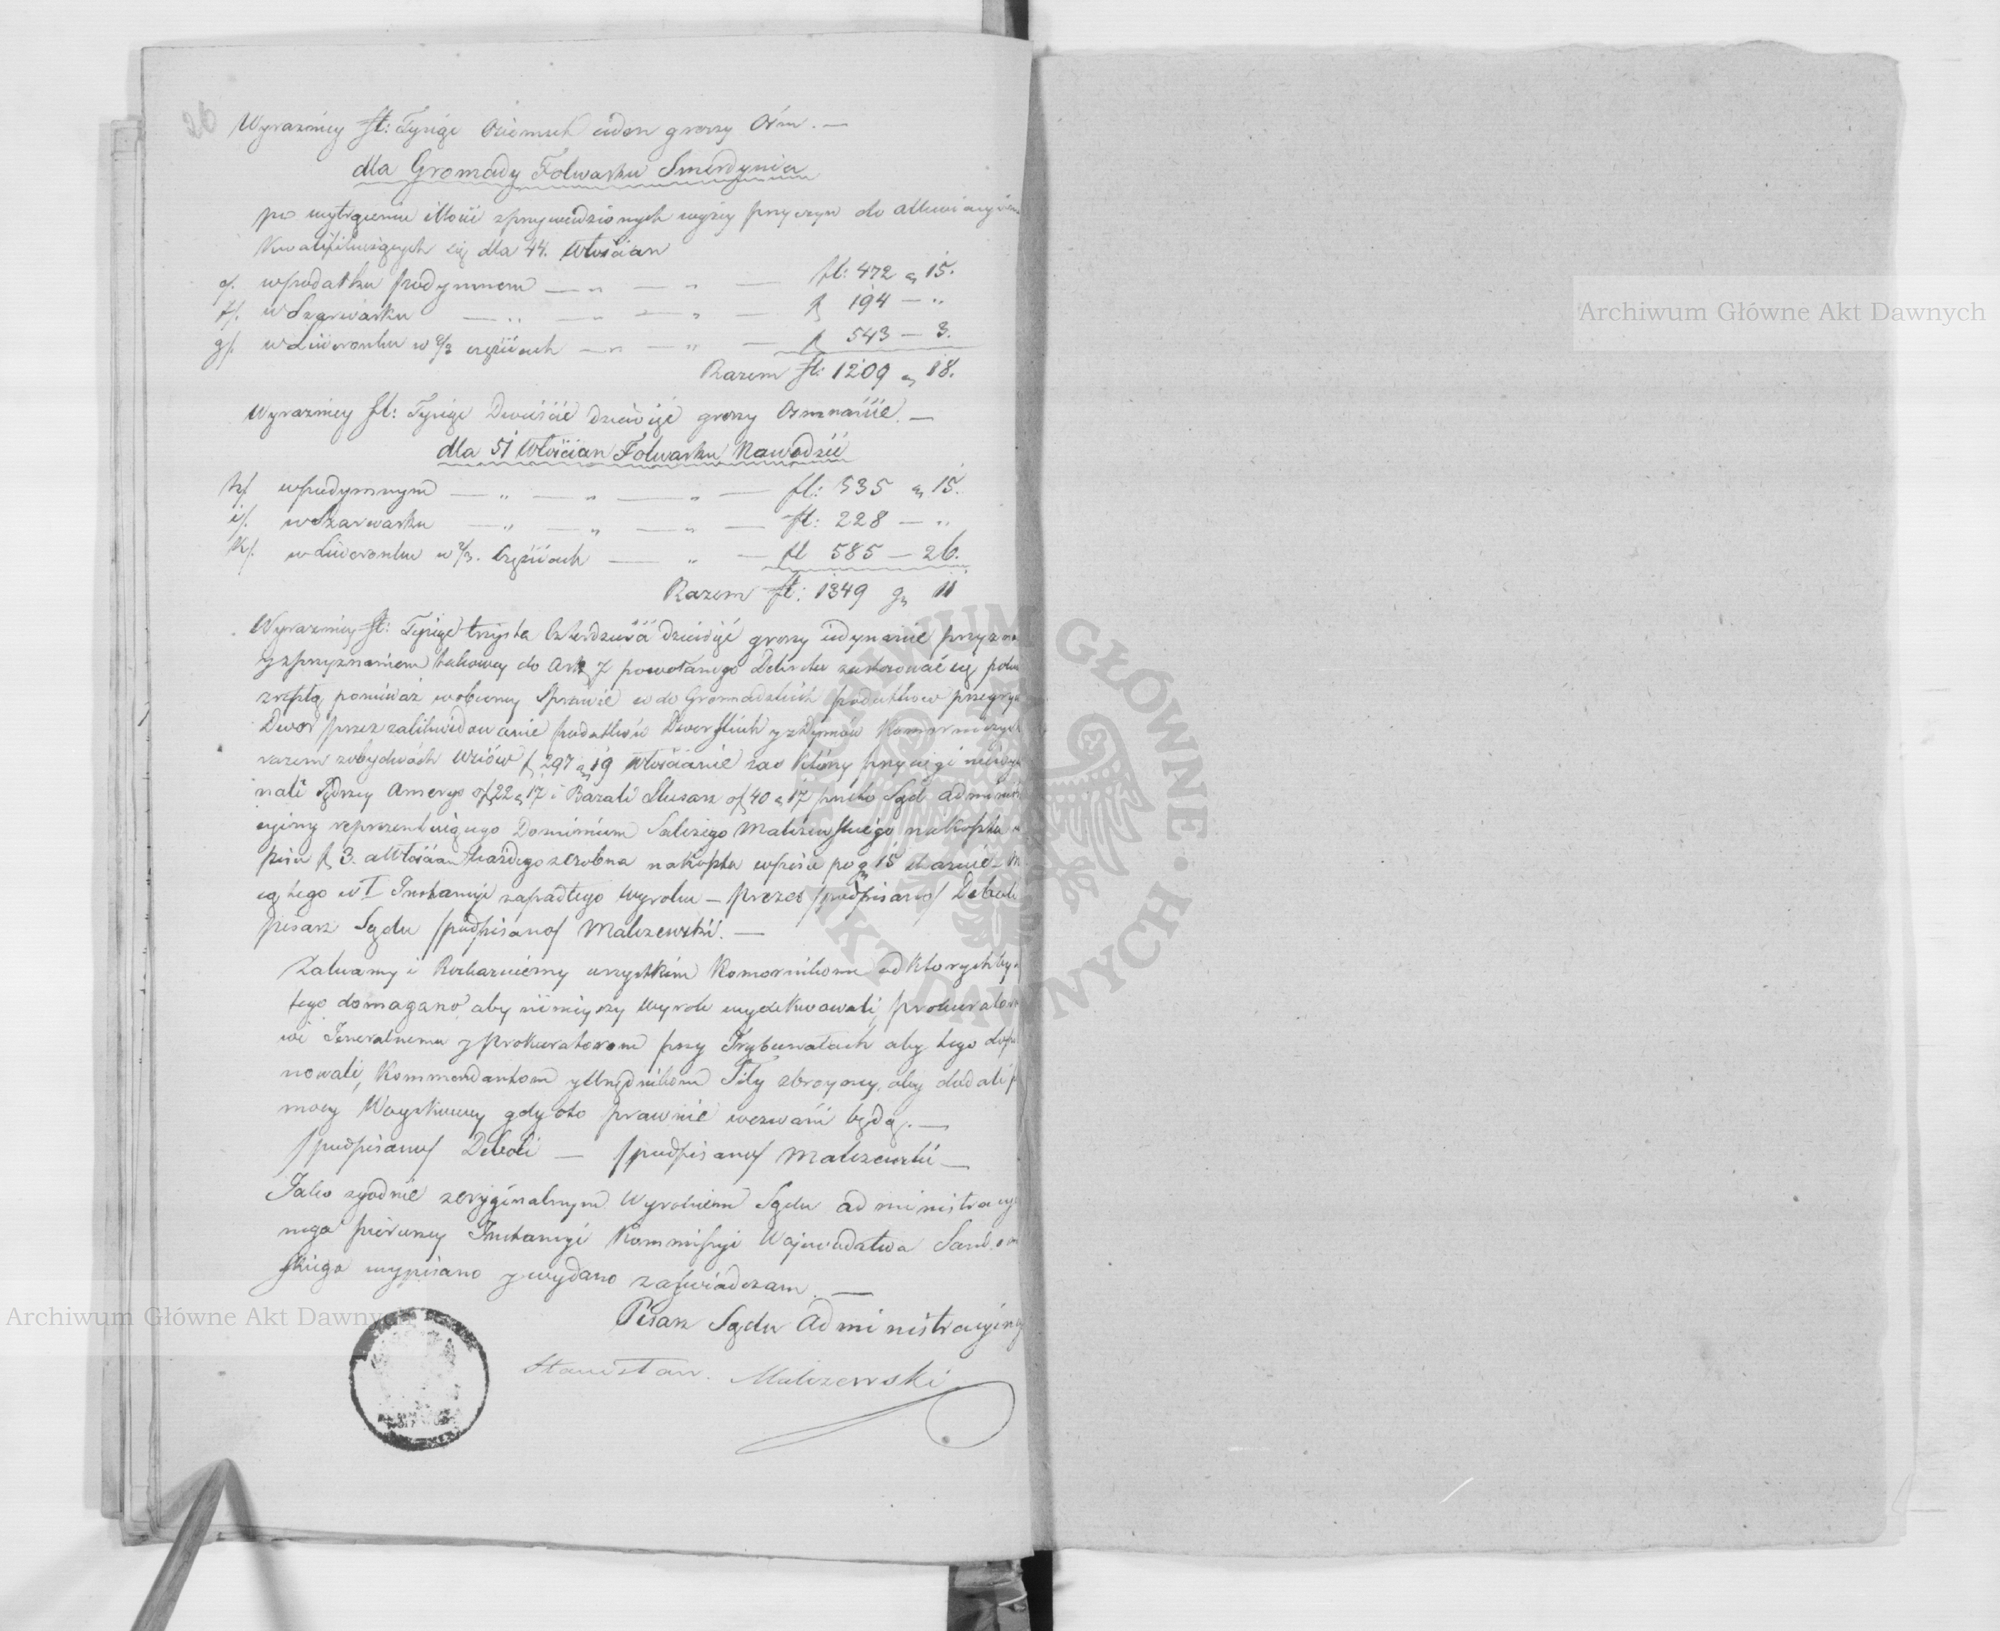 26
Wyrazniey fl: Tysiąc Ośemset eden groszy Ośm. —
dla Gromady Folwarku Smerdynia
po wytrąceniu ilości zprzywiedzionych wyżey przyczyn do
Kwalifikuiących się dla 44. Włościan
e/. w podatku podymnem — " — " — fl: 472 g 15.
f/. w Szarwarku — " — " — " — fl 194 — "
g/. w Liweronku w 2/3 częściach — " — " — fl 543 — 3.
Razem fl: 1209 g 18.
Wyrazniey fl: Tysiąc Dwieście dziewięć groszy Osmnaście. —
dla 51 Włościan Folwarku Nawodzic
h/ w podymnym — " — " — " — fl: 535 g 15.
i/. w Szarwarku — " — " — " — fl: 228 — "
k/. w Liweronku w 2/3. Częściach — " — fl 585 — 26.
Razem fl: 1349 gr 11
Wyrazniey fl: Tysiąc trzysta Czterdzieści dziewięć groszy iedynaście
y zprzyznaniem takowey do Art 7 powołanego Dekretu zastosować się
zresztą ponieważ w obecney Sprawie w do Gromadzkich podatkow
Dwor przez zalikwidowanie podatków Dworskich y z Dymów
razem zobydwóch Wsiów fl 297 g 19 Włościanie zas którzy przysięgi
nali Jędrzey Amerys o fl 22 g 17 i Bazali Slusarz o fl 40 g 17 przeto Sąd
cyiny reprezentuiącego Dominium Salezego Maliszewskiego na koszta
pisu fl 3. a Włościan każdego z osobna na koszta wpisu po g 15 skazuie —
cą tego w I Instancyi zapadłego wyroku — Prezes /podpisano/ Deboli
pisarz Sądu /podpisano/ Maliszewski. —
Zalecamy i Rozkazuiemy wszystkim Komornikom od ktorych by
tego domagano, aby ninieyszy wyrok wyexekwowali,
wi Jeneralnemu y Prokuratorom przy Trybunałach aby tego
nowali, Kommendantom y Urzędnikom Siły zbroyney, aby dodali
mocy Woyskowey gdy oto prawnie wezwani będą. —
/podpisano/ Deboli — /podpisano/ Maliszewski —
Jako zgodnie z oryginalnym Wyrokiem Sądu administracyi
nego pierwszey Instancyi Kommissyi Wojewodztwa
skiego wypisano y wydano zaświadczam. —
Pisarz Sądu Administracyiny
Stanisław. Maliszewski
Archiwum Główne Akt Dawnych
ARCHIWUM GŁÓWNE · AKT DAWNYCH ·
Archiwum Główne Akt Dawnych